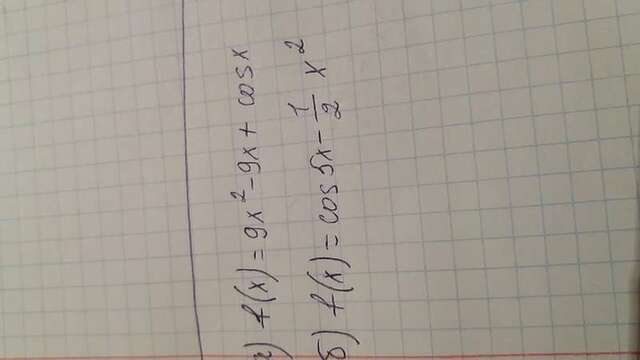 а) f(x) = 9x² - 9x + cos x
б) f(x) = cos 5x - 1/2 x²